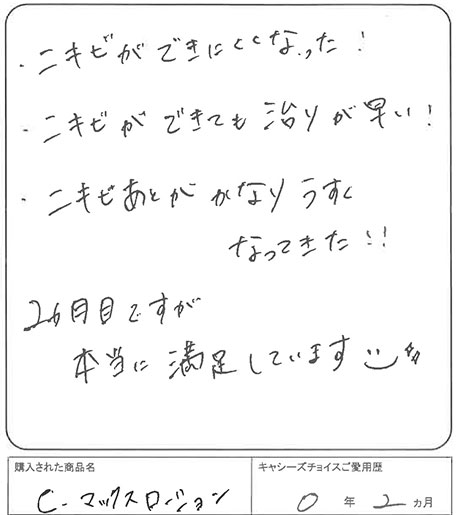 ・ニキビができにくくなった！
・ニキビができても治りが早い！
・ニキビあとがかなりうすく
なってきた！！
2ヶ月目ですが
本当に満足しています
購入された商品名
キャシーズチョイスご愛用歴
C-マックスローション
0年2ヵ月